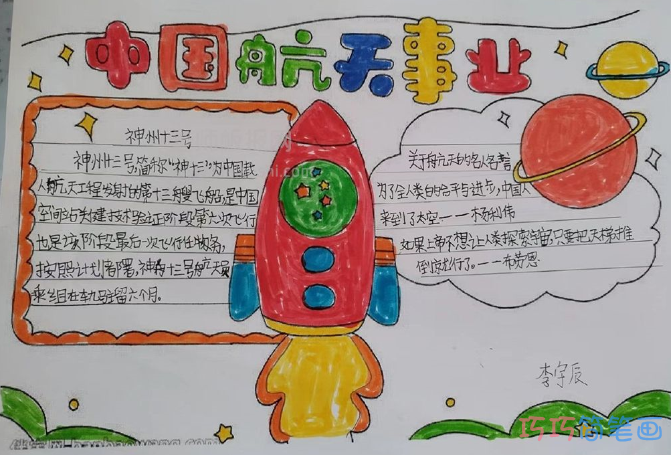 中国航天事业
神州十三号
神州十三号,简称"神十三",为中国载
人航天工程发射的第十三艘飞船,是中国
空间站关键技术验证阶段第六次飞行,
也是该阶段最后一次飞行任务,
按照计划部署,神舟十三号航天员
乘组在轨驻留六个月。
关于航天的名人名言
为了全人类的和平与进步,中国人
来到了太空。——杨利伟
如果上帝不想让人类探索宇宙,只要把天梯推
倒就行了。——布劳恩
李宇辰
巧巧简笔画